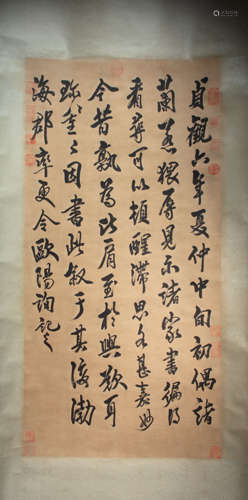 貞觀六年夏仲中旬初偶詣
蘭若猥辱見示諸家書徧得
看尋可以頓醒滯思甚嘉妙
今昔孰為比肩至於興歎耳
珍重〻因書此敘于其後渤
海郡率更令歐陽詢記之